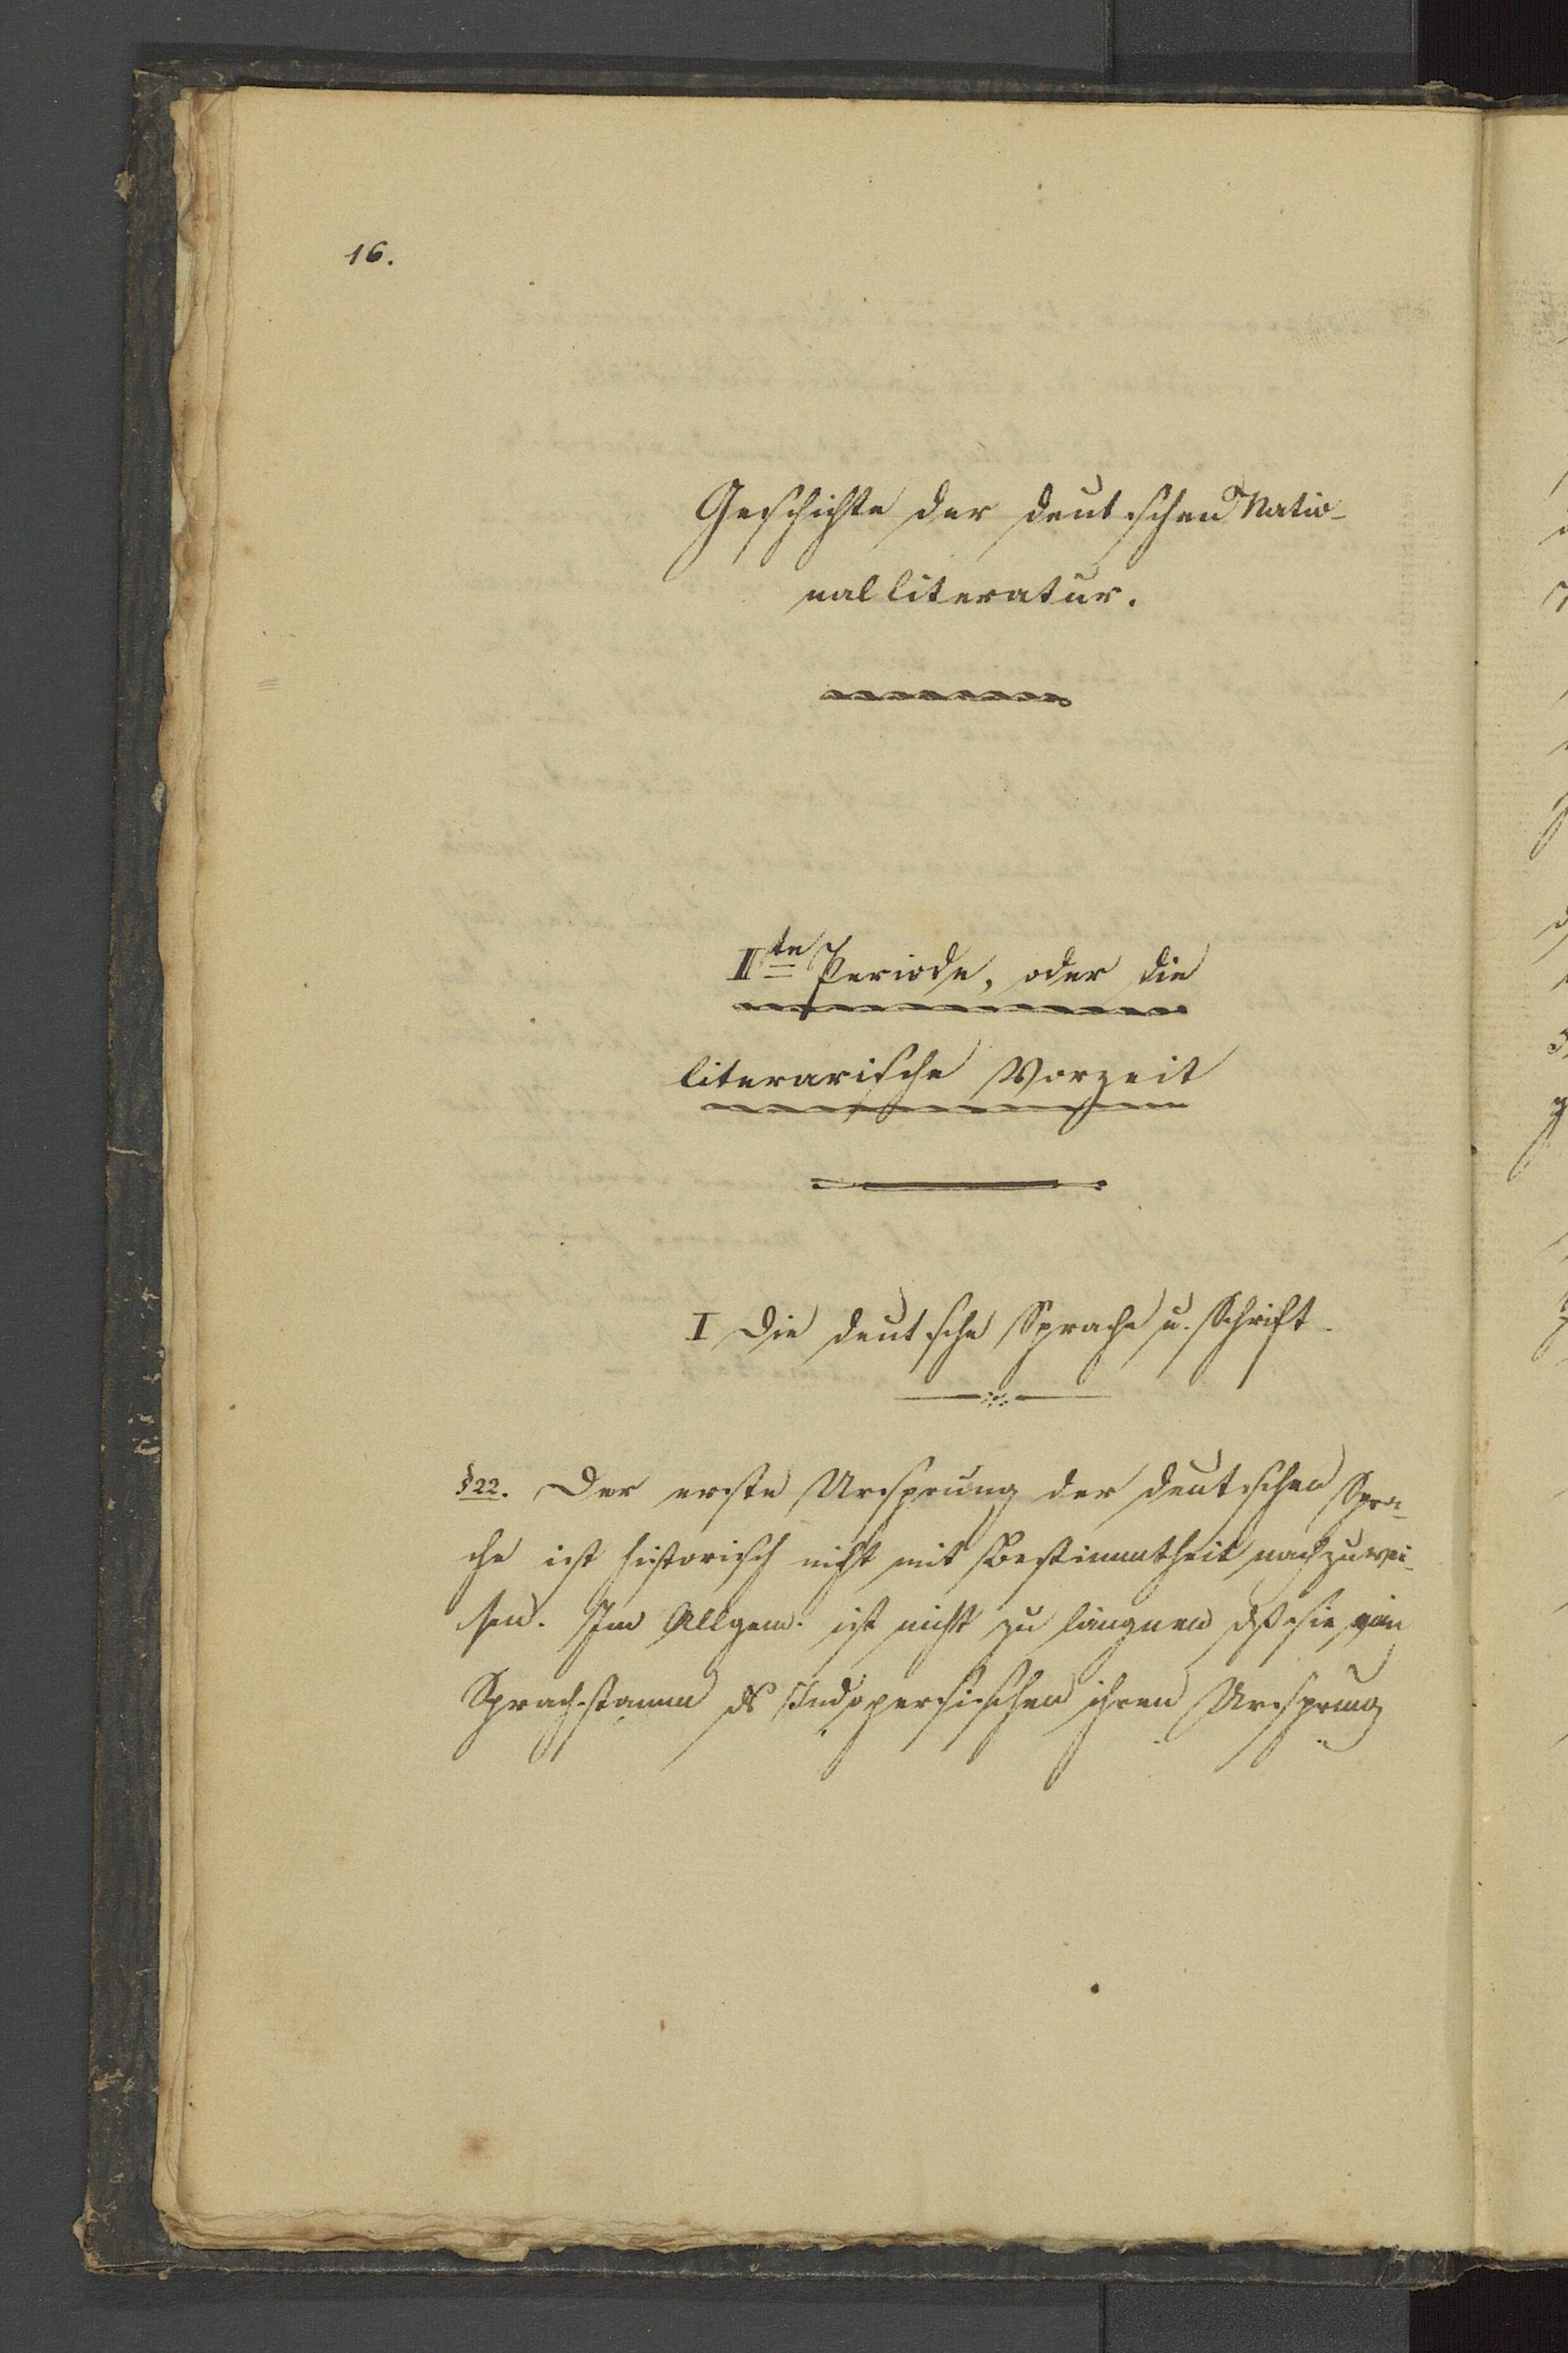 16.
Geschichte der deutschen Natio-
nalliteratur.
IIte Periode, oder die
literarische Vorzeit
I Die deutsche Sprache u. Schrift.
§22. Der erste Ursprung der deutschen Spra-
che ist historisch nicht mit Bestimmtheit nachzuwei-
sen. Im Allgem. ist nicht zu läugnen dß sie
Sprachstamm ds Indopersischen ihren Ursprung